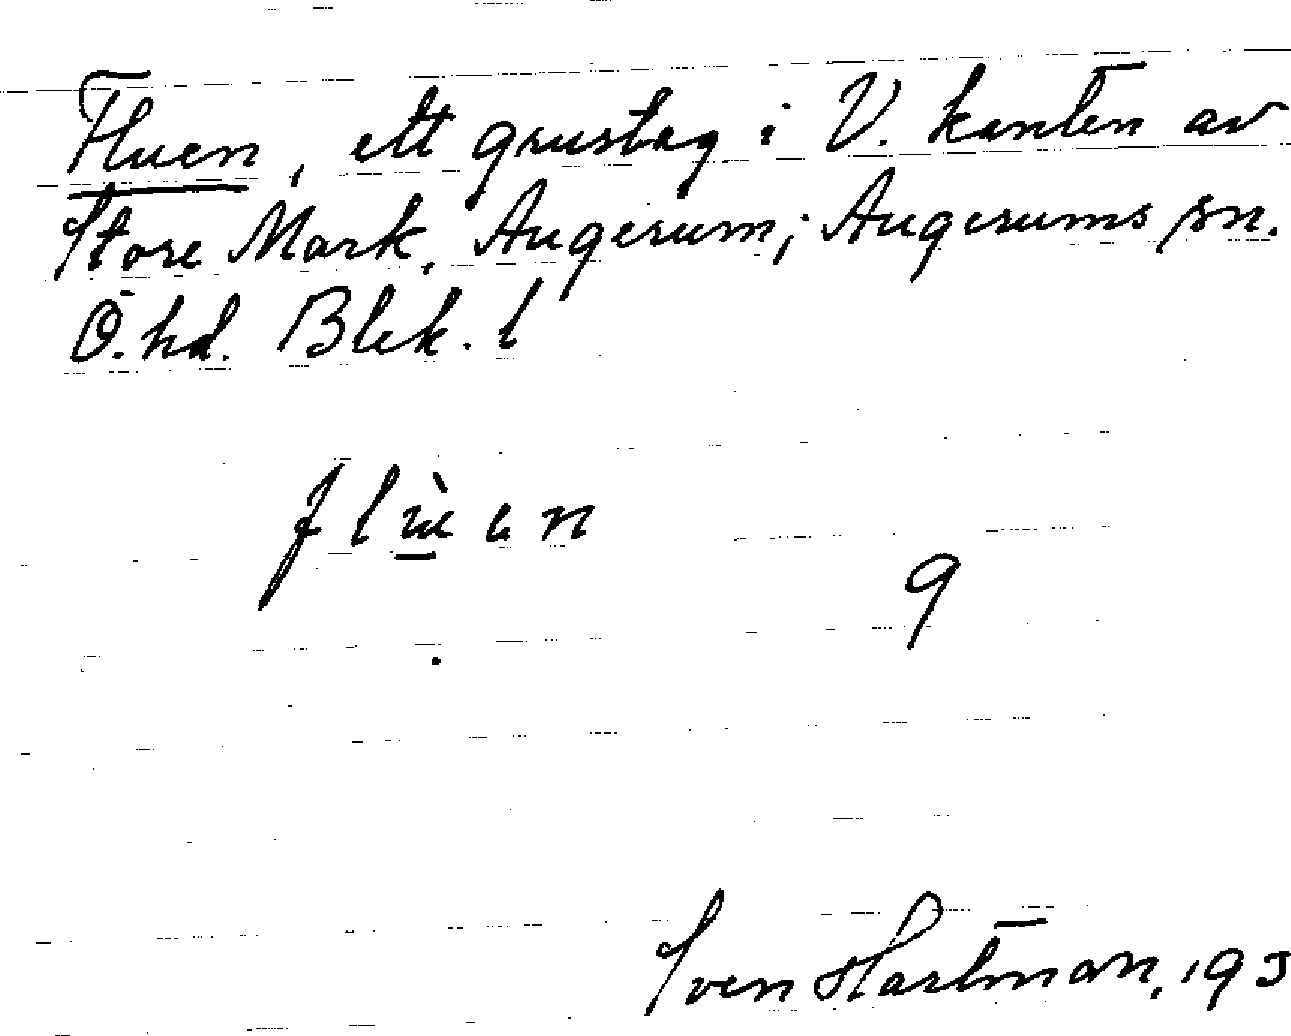 Fluen, ett grustag i V. kanten av
Store Mark, Augerum; Augerums sn.
Ö.hd. Blek. l
9
Sven Hartman, 193